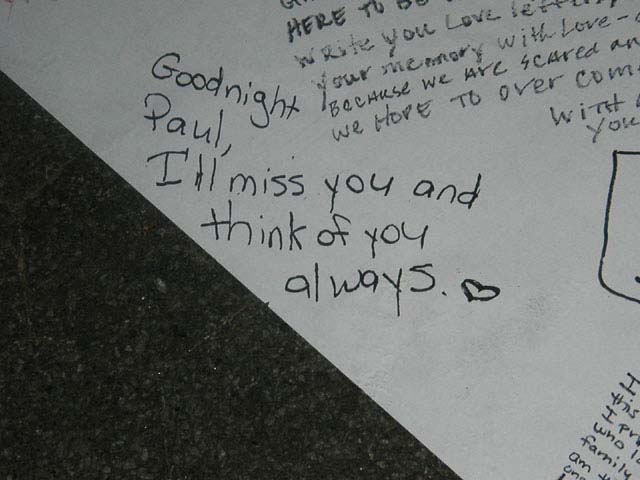 HERE TO BE
write you Love letters
your memory with Love-
BECAUSE WE ARE SCARED AN
WE HOPE TO OVER COM
WITH
YOU
Goodnight
Paul,
I'll miss you and
think of you
always. ♡
H
this
I pr
who lo
family
an